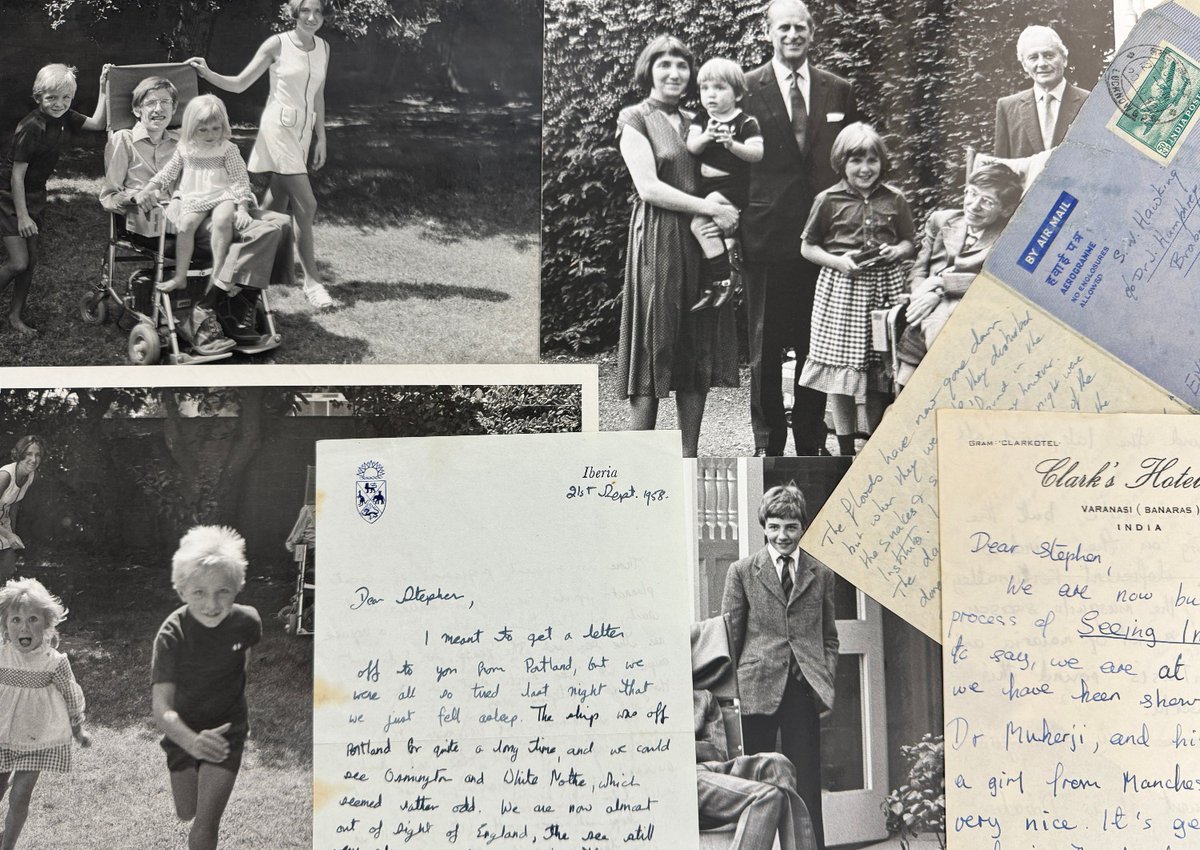 Iberia
21st Sept. 1958.
Dear Stephen,
I meant to get a letter
off to you from Portland, but we
were all so tired last night that
we just fell asleep. The ship was off
Portland for quite a long time, and we could
see Osmington and White Nothe, which
seemed rather odd. We are now almost
out of sight of England, the sea still
BY AIR MAIL
हवाई पत्र
AEROGRAMME
NO ENCLOSURES
ALLOWED
INDIA
S.W. Hawking
c/o Dr J. Humphrey
The floods have now gone down
but when they we they disturbed
the snakes
institute.
The
GRAM "CLARKOTEL"
Clark's Hotel
VARANASI (BANARAS)
INDIA
Dear Stephen,
We are now bu
process of Seeing In
to say, we are at
we have been show
Dr Mukerji, and hi
a girl from Manches
very nice. It's ge